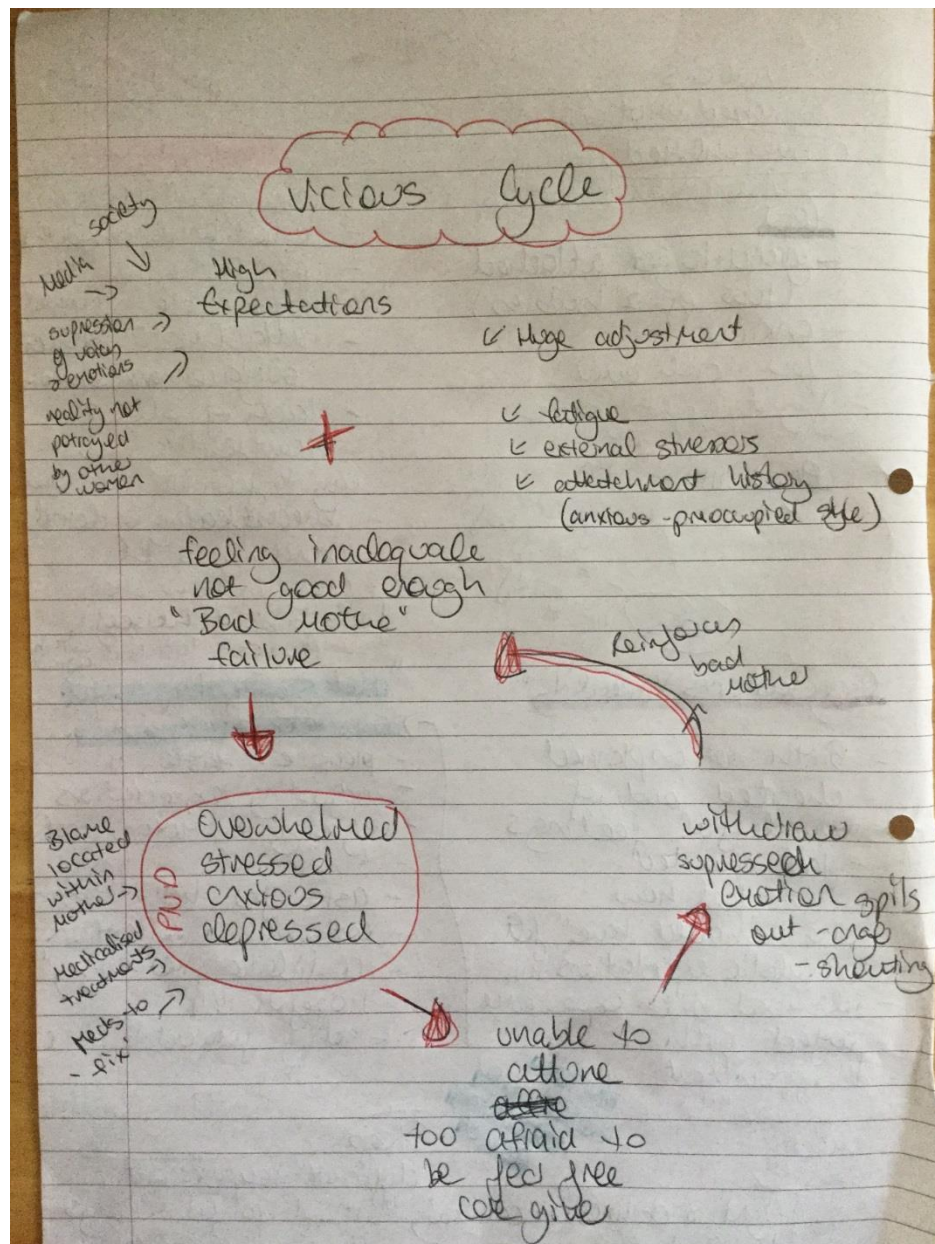 Vicious Cycle
society
Media
High
Expectations
supression
of voices
& emotions
reality not
potrayed
by other
women
Huge adjustment
+
fatigue
external stressors
attatchment history
(anxious-preoccupied style)
feeling inadequate
not good enough
"Bad Mother"
failure
Reinforces
bad
Mother
Blame
located
within
Mother
Medicalised
treatments
Meds to
- fix'
PND
Overwhelmed
stressed
anxious
depressed
withdraw
supressed
emotion spils
out -
- shouting
unable to
attune
too afraid to
be free
give